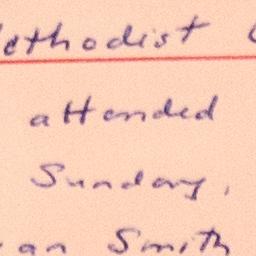 ethodist
attended
Sunday,
an Smith